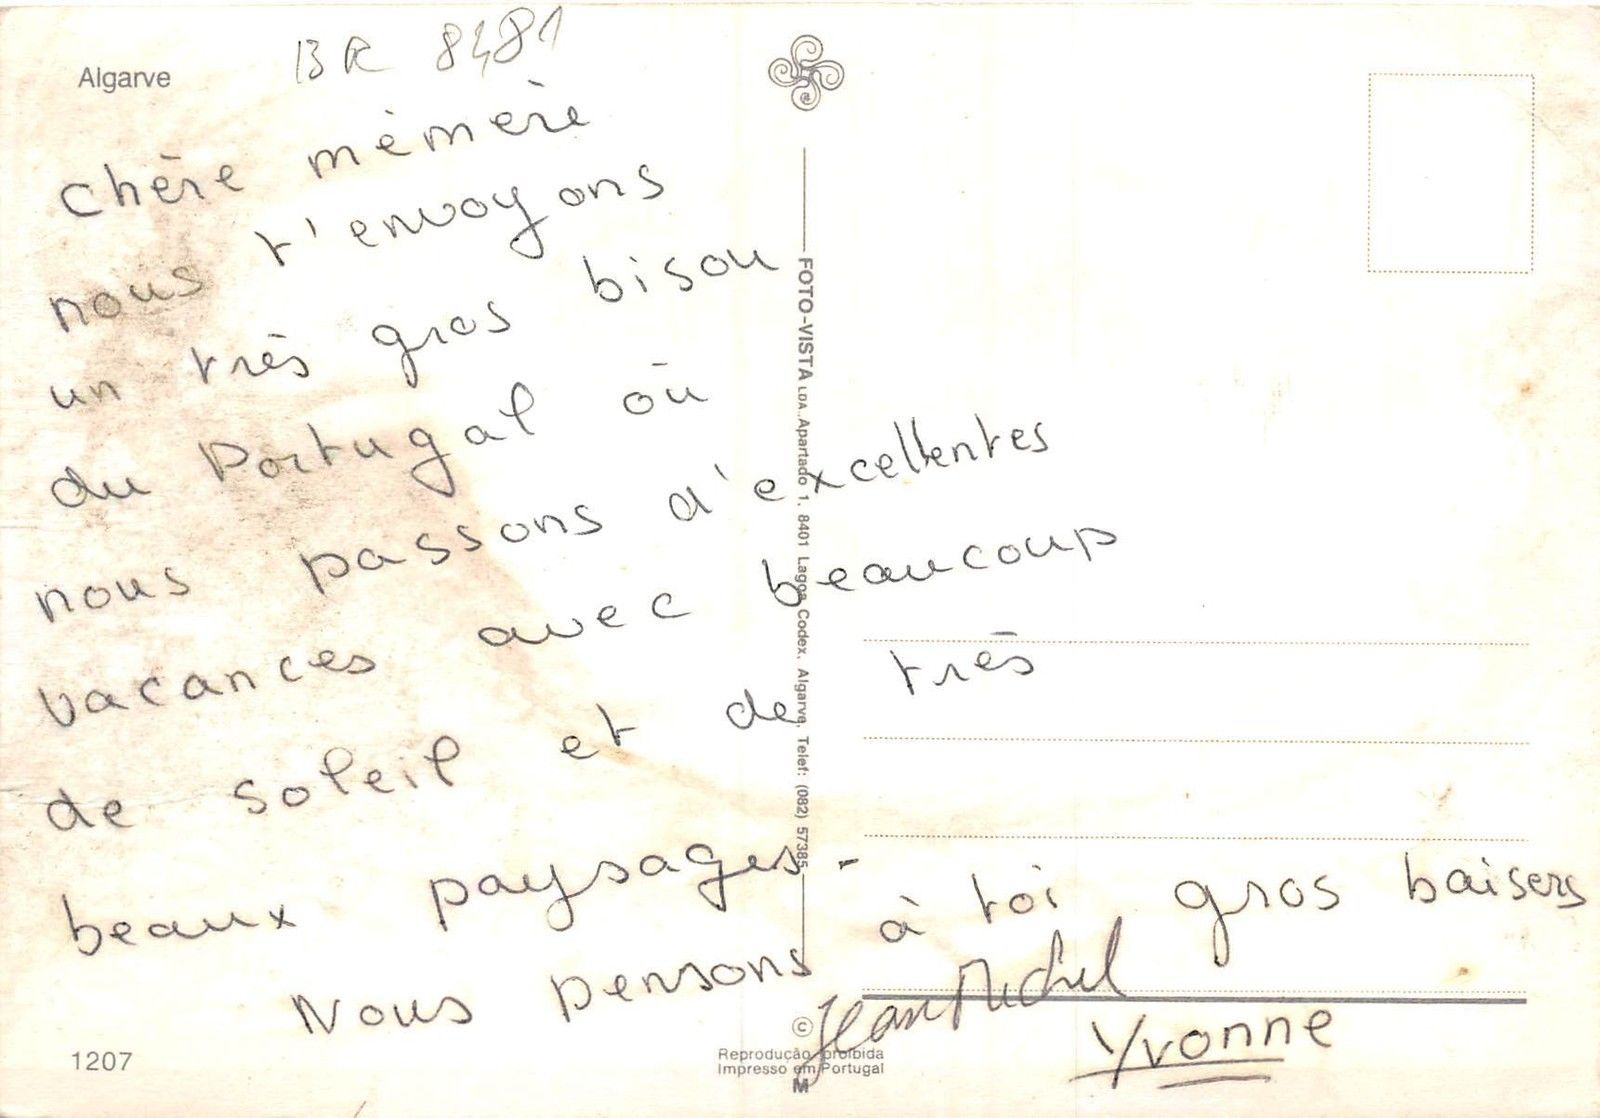 Algarve
BR 8481
chère mémère
nous t'envoyons
un très gros bisou
du Portugal où
nous passons d'excellentes
vacances avec beaucoup
de soleil et de très
beaux paysages -
Nous pensons à toi gros baisers
Jean Michel
Yvonne
FOTO-VISTA LDA. Apartado 1, 8401 Lagoa Codex, Algarve, Telef: (082) 57385
1207
©
Reprodução proibida
Impresso em Portugal
M